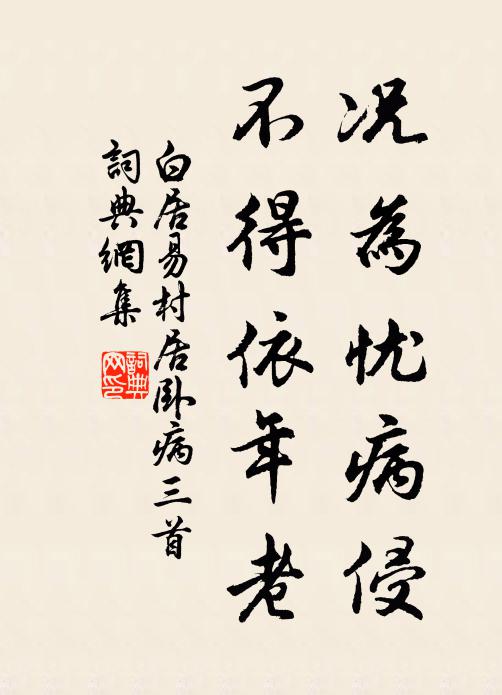 况為忧病侵
不得依年老
白居易村居卧病三首
詞典網集
詞典網印